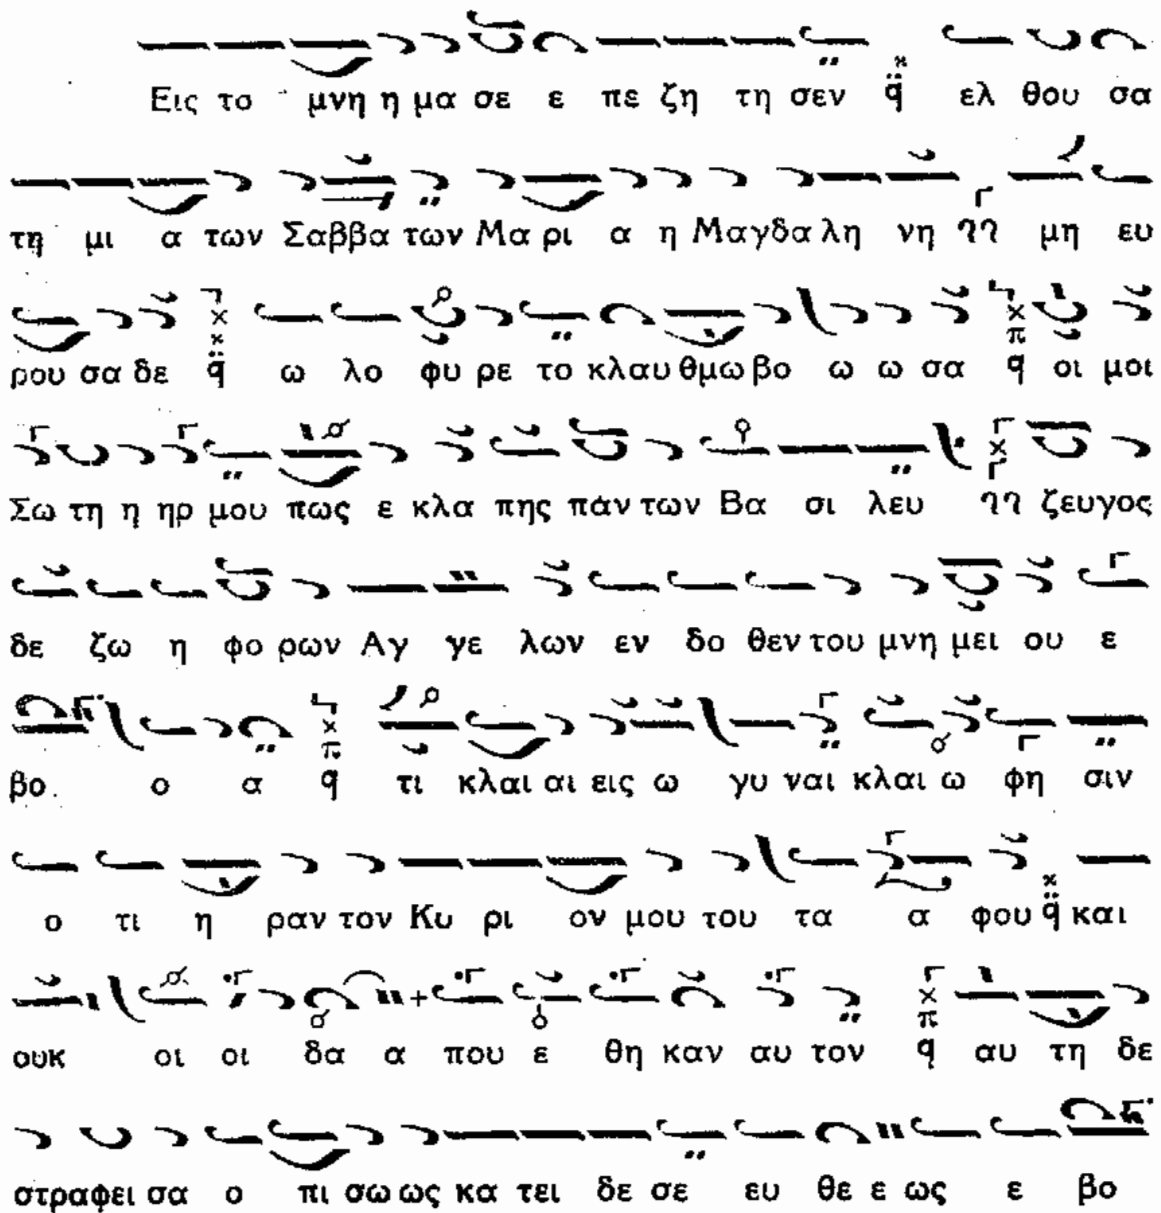 Εις το μνη η μα σε ε πε ζη τη σεν ελ θου σα
τη μι α των Σαββα των Μα ρι α η Μαγδα λη νη μη ευ
ρου σα δε ω λο φυ ρε το κλαυ θμω βο ω ω σα οι μοι
Σω τη η ηρ μου πως ε κλα πης πάν των Βα σι λευ ζευγος
δε ζω η φο ρων Αγ γε λων εν δο θεν του μνη μει ου ε
βο ο α τι κλαι αι εις ω γυ ναι κλαι ω φη σιν
ο τι η ραν τον Κυ ρι ον μου του τα α φου και
ουκ οι οι δα α που ε θη καν αυ τον αυ τη δε
στραφει σα ο πι σω ως κα τει δε σε ευ θε ε ως ε βο